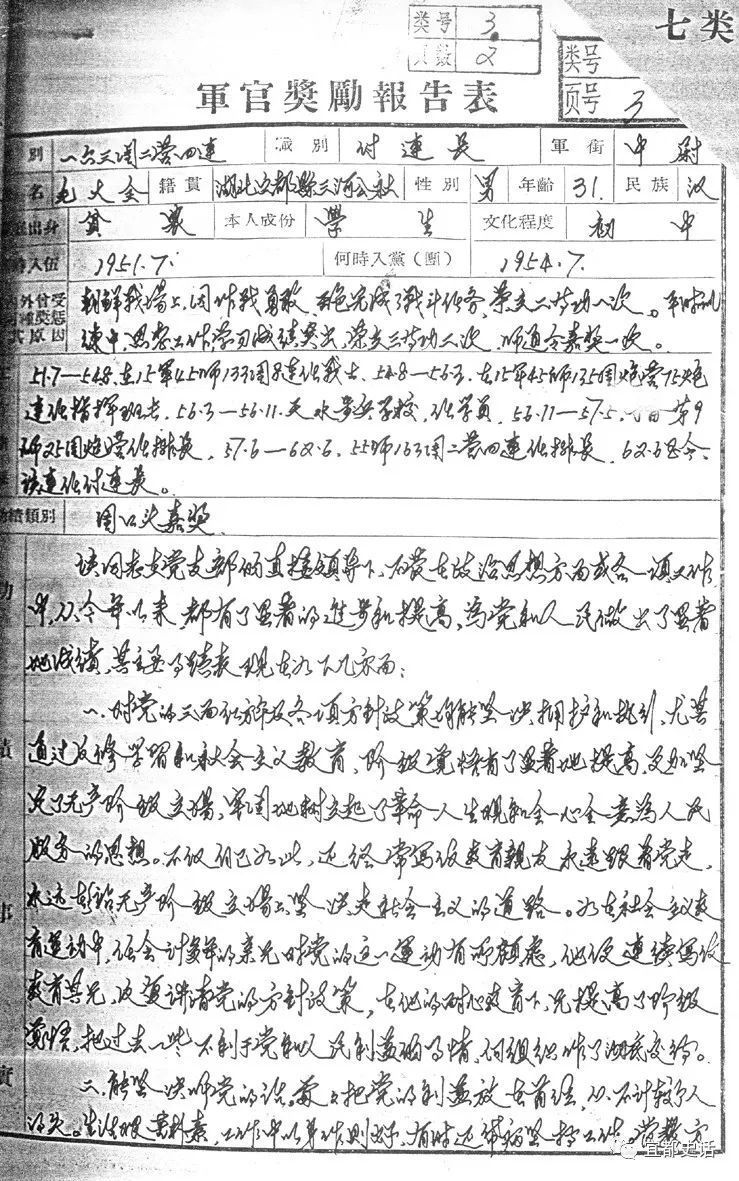 七类
类号 3.
页数 2
类号
页号 3
軍官獎勵報告表
别 一六三团二营四连 識别 付連長 軍銜 中尉
名 毛大全 籍貫 湖北宜都縣三河公社 性别 男 年齡 31. 民族 汉
出身 貧農 本人成份 學生 文化程度 初中
時入伍 1951.7. 何時入黨(團) 1954.7.
朝鲜战場上,因作战勇敢,出色完成了战斗任务,荣立二等功一次。平时训
练中思想工作学习成绩突出,荣立三等功二次,师通令嘉奖一次。
51.7—54.8.在15軍45师133团8连任战士,54.8—56.3.在15軍45师135团炮营75炮
連任指挥班长,56.3—56.11.天水步兵学校,任学員,56.11—57.5.第9
师25团炮营任排長,57.6—62.6.55师163团二营四連任排長,62.6至今
该連任付連長。
績類别 团口头嘉奖
该同志在党支部的直接領导下,不管在政治思想方面或各項工作
中,从今年以来都有了显著的進步和提高,為党和人民做出了显著
地成績,其主要事蹟表现在以下几方面:
一、对党的三面红旗及各项方針政策均能坚决拥护和执行,尤其
通过反修学習和社会主义教育,阶级覺悟有了显著地提高,更加坚
定了无产阶级立場,牢固地树立起了革命人生观和全心全意為人民
服务的思想。不仅自己如此,还经常写信教育親友永远跟着党走,
永远站在无产阶级立場上坚决走社会主义的道路。如在社会主义教
育運动中,任会计多年的亲兄对党的这一運动有所顧虑,他便連续写信
教育其兄,反复讲清党的方針政策,在他的耐心教育下,兄提高了阶级
覺悟,把过去一些不利于党和人民利益的事情,向組织作了彻底交待。
二、能坚决听党的话,處处把党的利益放在首位,从不计较个人
得失。生活艰苦朴素,工作中以身作则,有时还带病坚持工作。
宜都史话